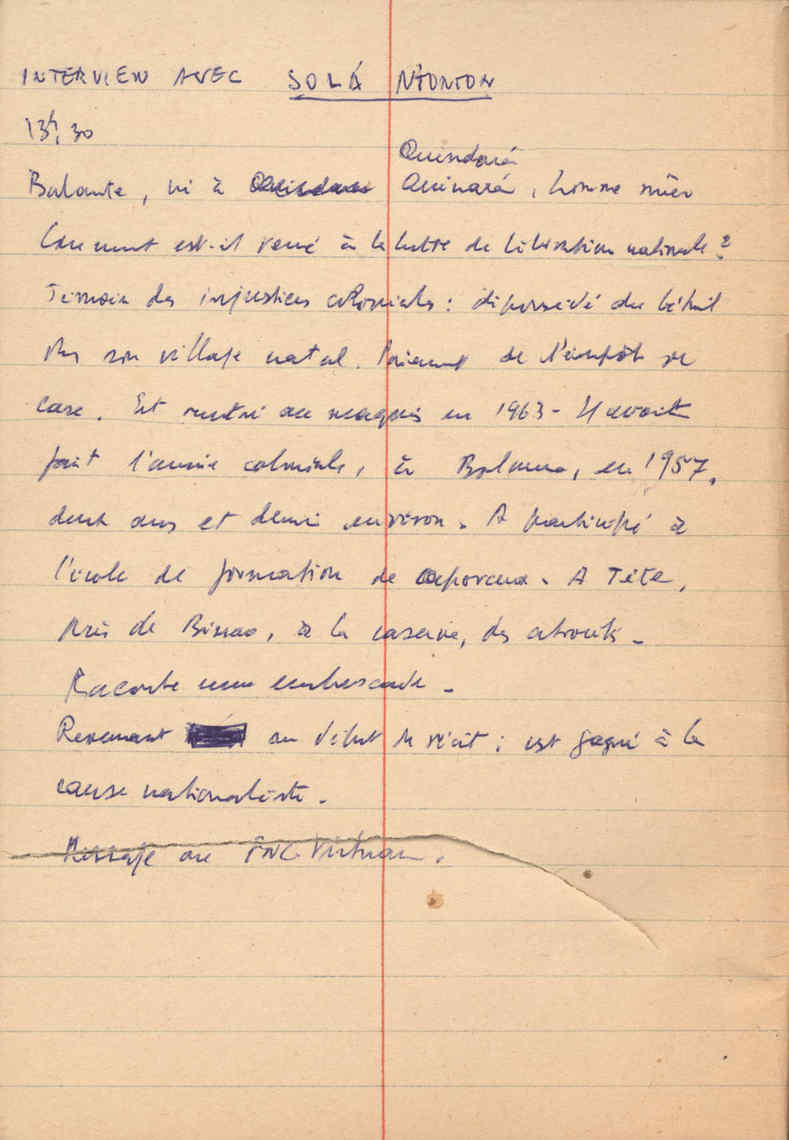 INTERVIEW AVEC SOLÁ N'TONTON
13h,30
Quindará
Balante, né à Quinará, homme mûr
Comment est-il venu à la lutte de libération nationale?
Témoin des injustices coloniales: dépossédé du bétail
dans son village natal. Paiement de l'impôt de
case. Est rentré au maquis en 1963 - Il avait
fait l'armée coloniale, à Bolama, en 1957,
deux ans et demi environ. A participé à
l'école de formation de caporaux. A Tête,
près de Bissao, à la caserne, des
Raconte une embuscade -
Revenant au début du récit: est gagné à la
cause nationaliste.
Message au FNL-Vietnam.